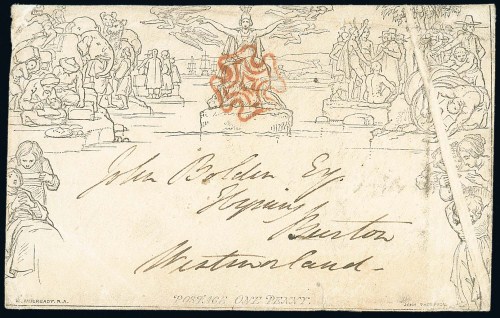 John Bolden Esq.
Hyning
Burton
Westmorland
W. MULREADY. R.A.
POSTAGE ONE PENNY.
JOHN THOMPSON